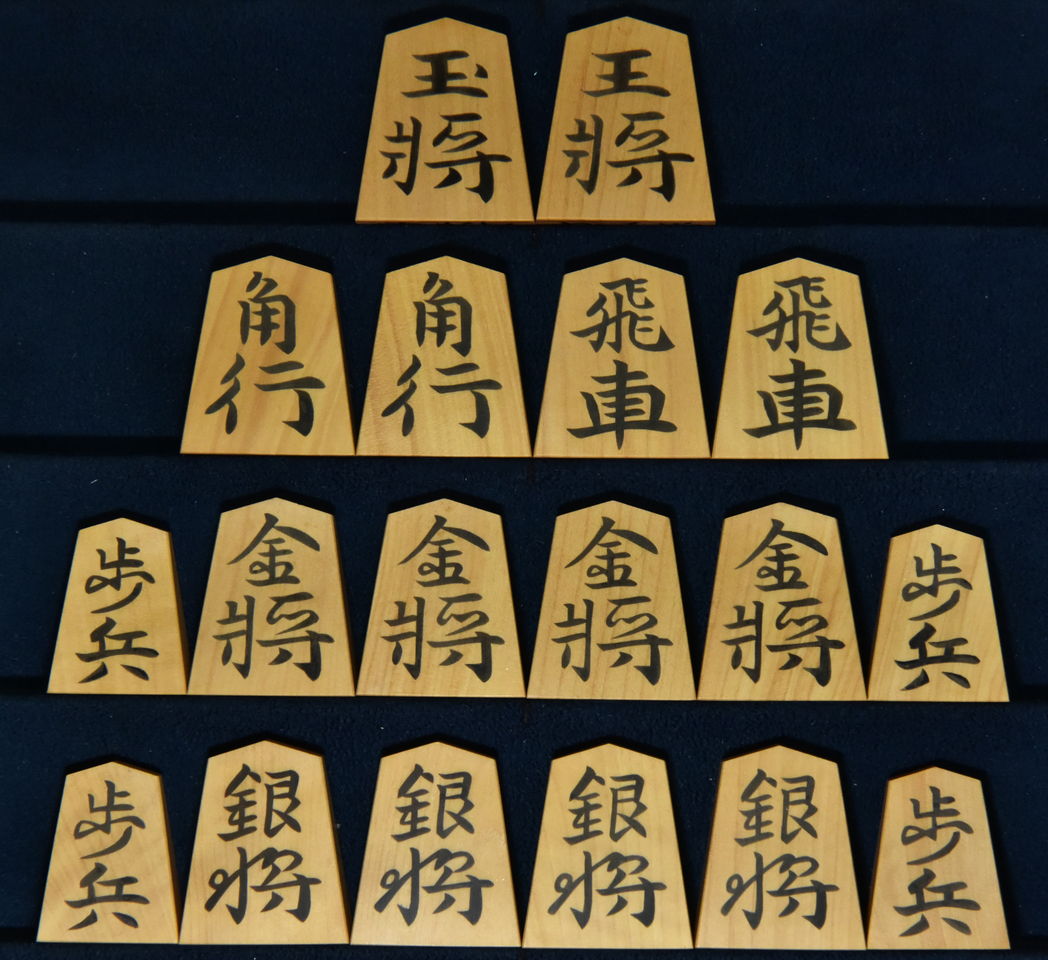 玉將 王將
角行 角行 飛車 飛車
歩兵 金將 金將 金將 金將 歩兵
歩兵 銀将 銀将 銀将 銀将 歩兵